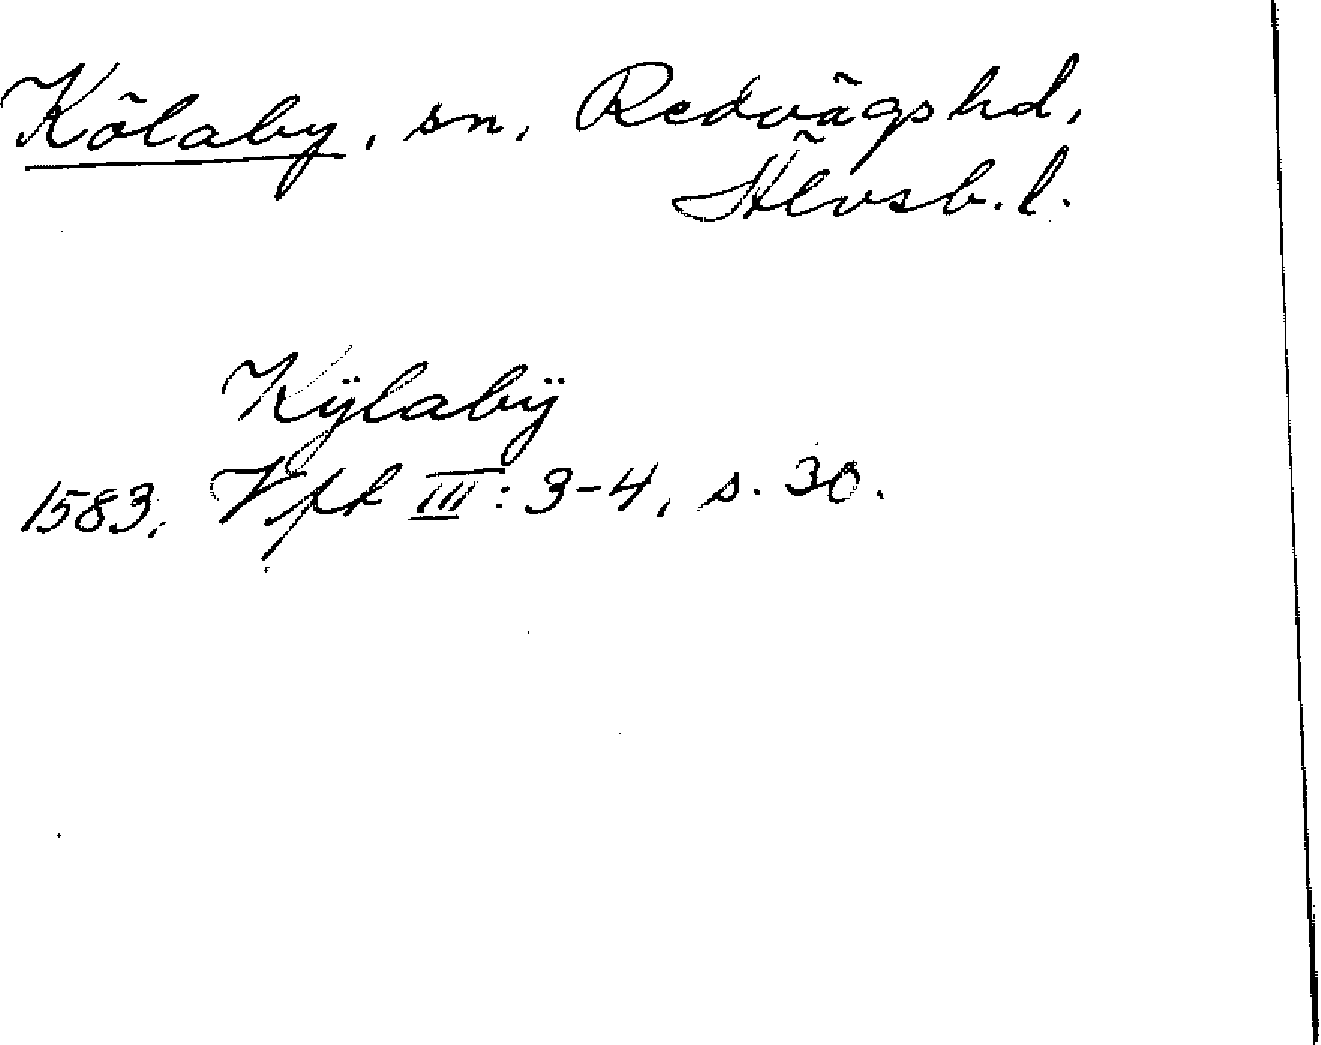 Kölaby, sn, Redvägs hd,
Älvsb. l.
Kÿlabÿ
1583, Vfk III: 3-4, s. 30.